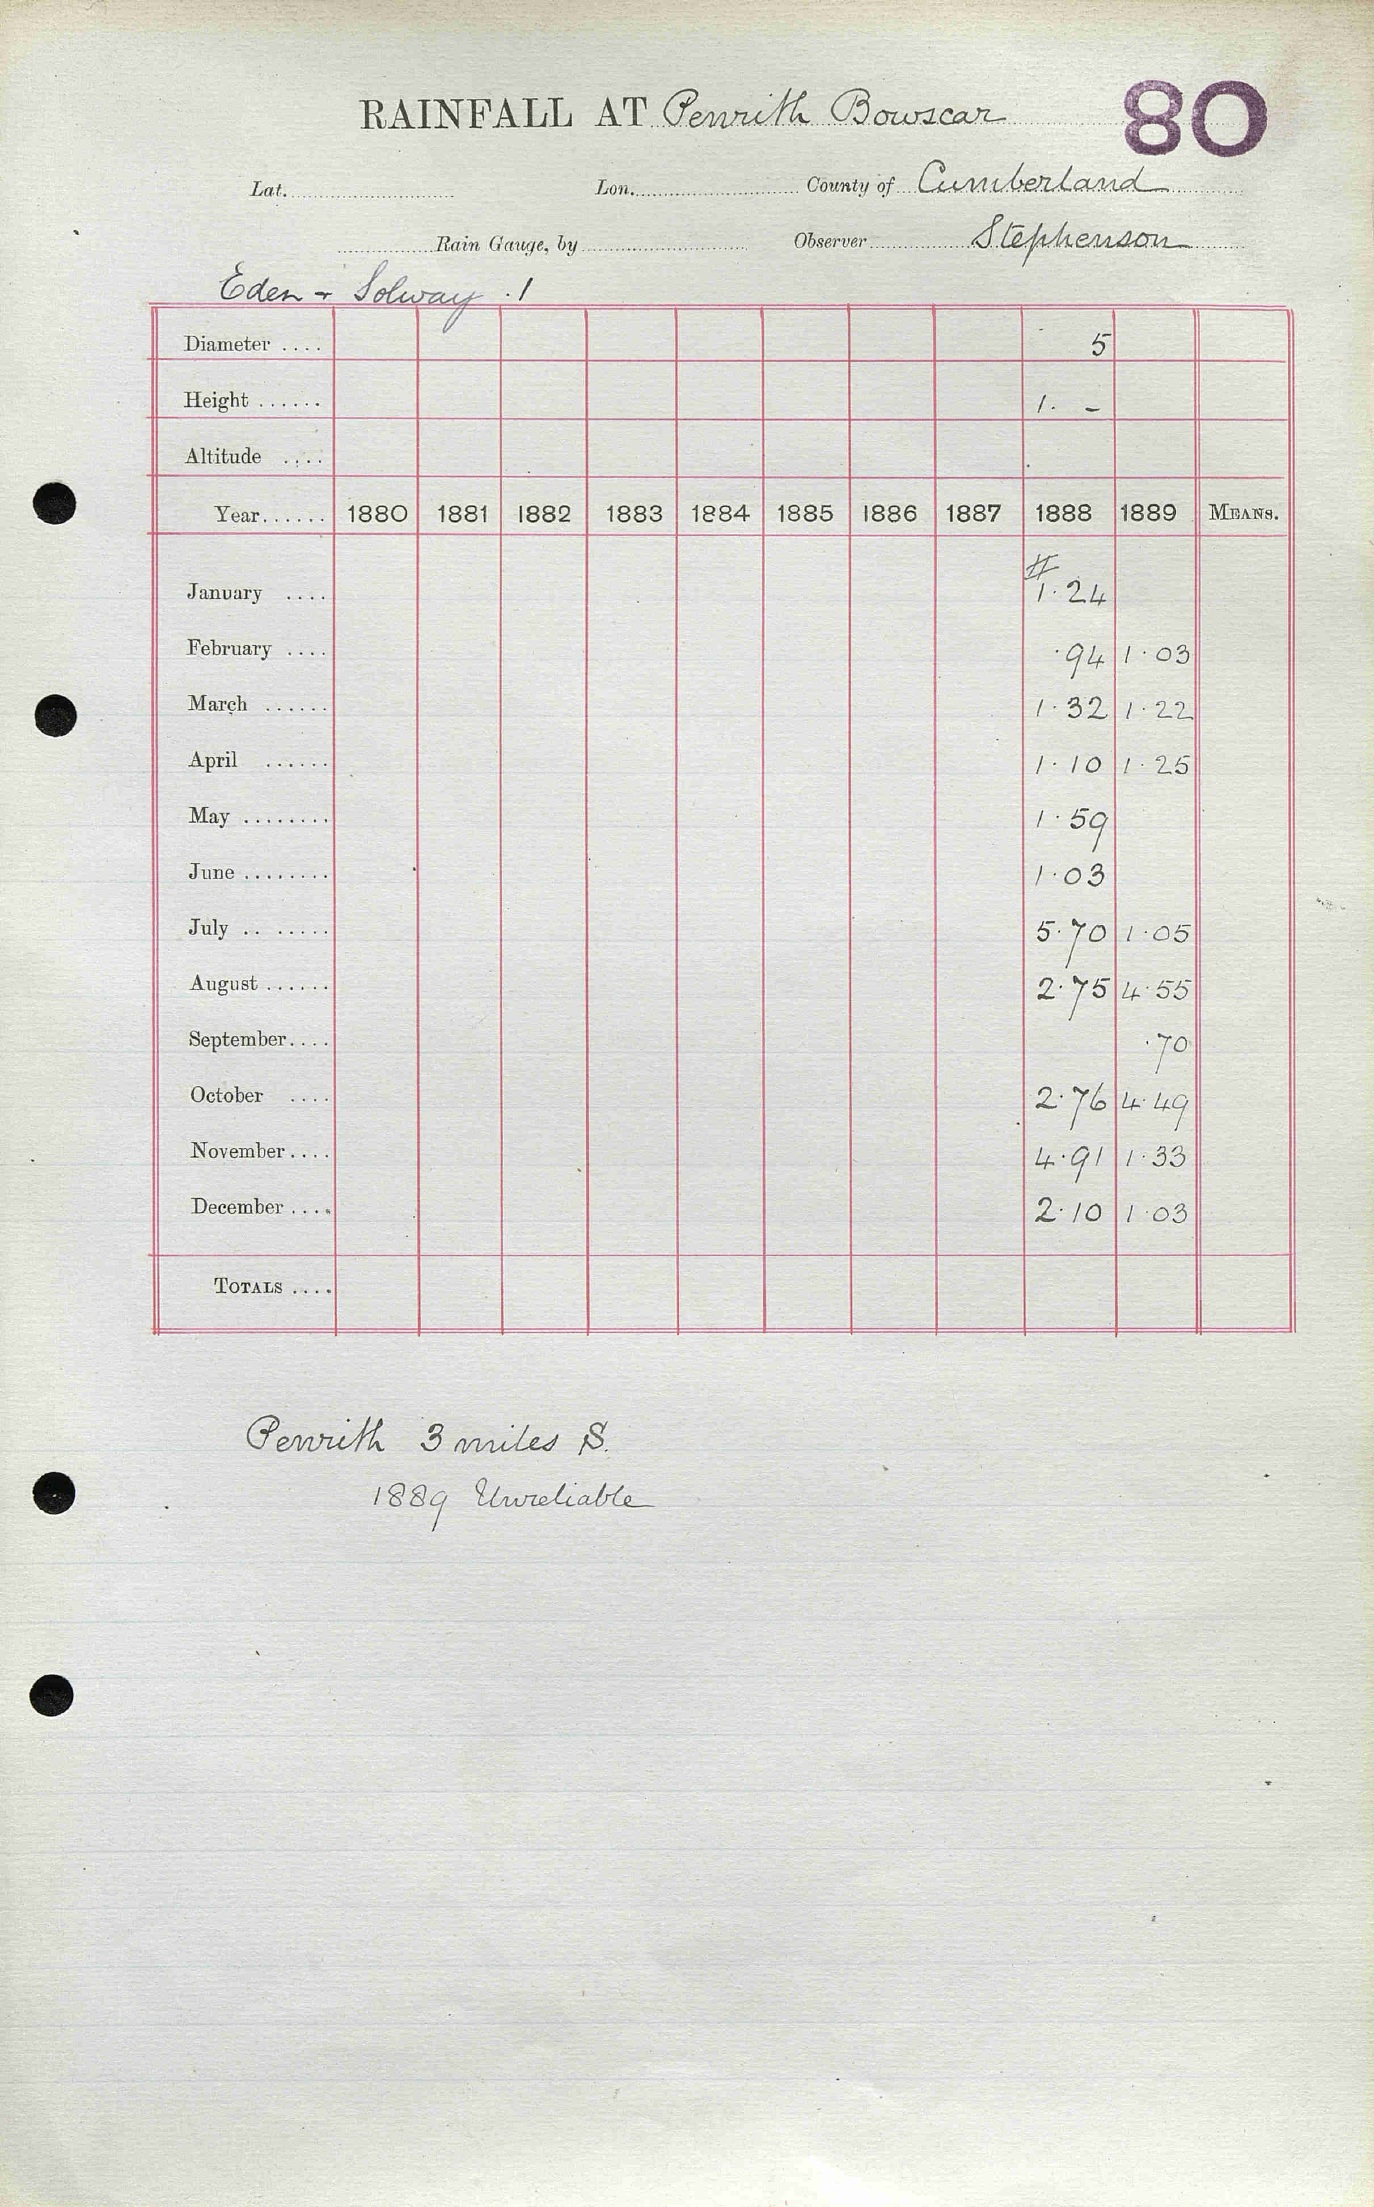 RAINFALL AT Penrith Bowscar 80
Lat. Lon. County of Cumberland
Rain Gauge, by Observer Stephenson
Eden + Solway .1
Diameter .... 5
Height ...... 1. -
Altitude ....
Year...... 1880 1881 1882 1883 1884 1885 1886 1887 1888 1889 MEANS.
#
January .... 1.24
February .... .94 1.03
March ...... 1.32 1.22
April ...... 1.10 1.25
May ........ 1.59
June ........ 1.03
July .. ..... 5.70 1.05
August ...... 2.75 4.55
September.... .70
October .... 2.76 4.49
November.... 4.91 1.33
December .... 2.10 1.03
TOTALS ....
Penrith 3 miles S.
1889 Unreliable